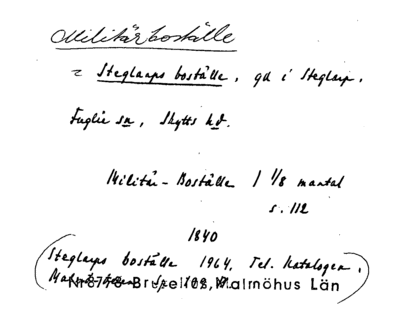 Militärboställe
= Steglarps boställe, gd i Steglarp,
Fuglie sn, Skytts hd.
Militär-Boställe 1 1/8 mantal
s. 112
1840
(Steglarps boställe 1964, Tel. katalogen,
Malmöhus Län)